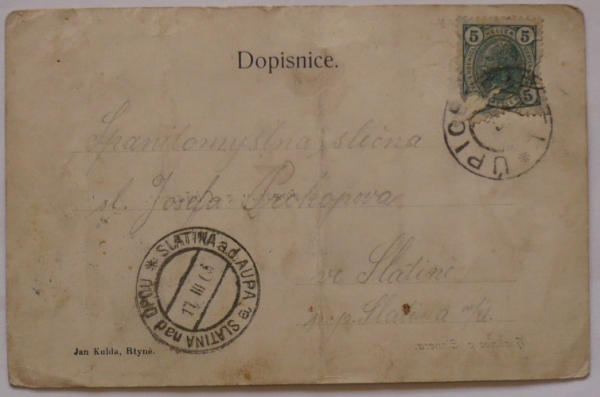 Dopisnice.
5 5
5
ÚPICE
Spanilomyslna slečna
sl. Josefa Prokopova
ve Slatině
p.p. Slatina n/Ú.
* SLATINA a.d. AUPA *
SLATINA nad ÚPOU
17 III 06
Jan Kulda, Rtyně.